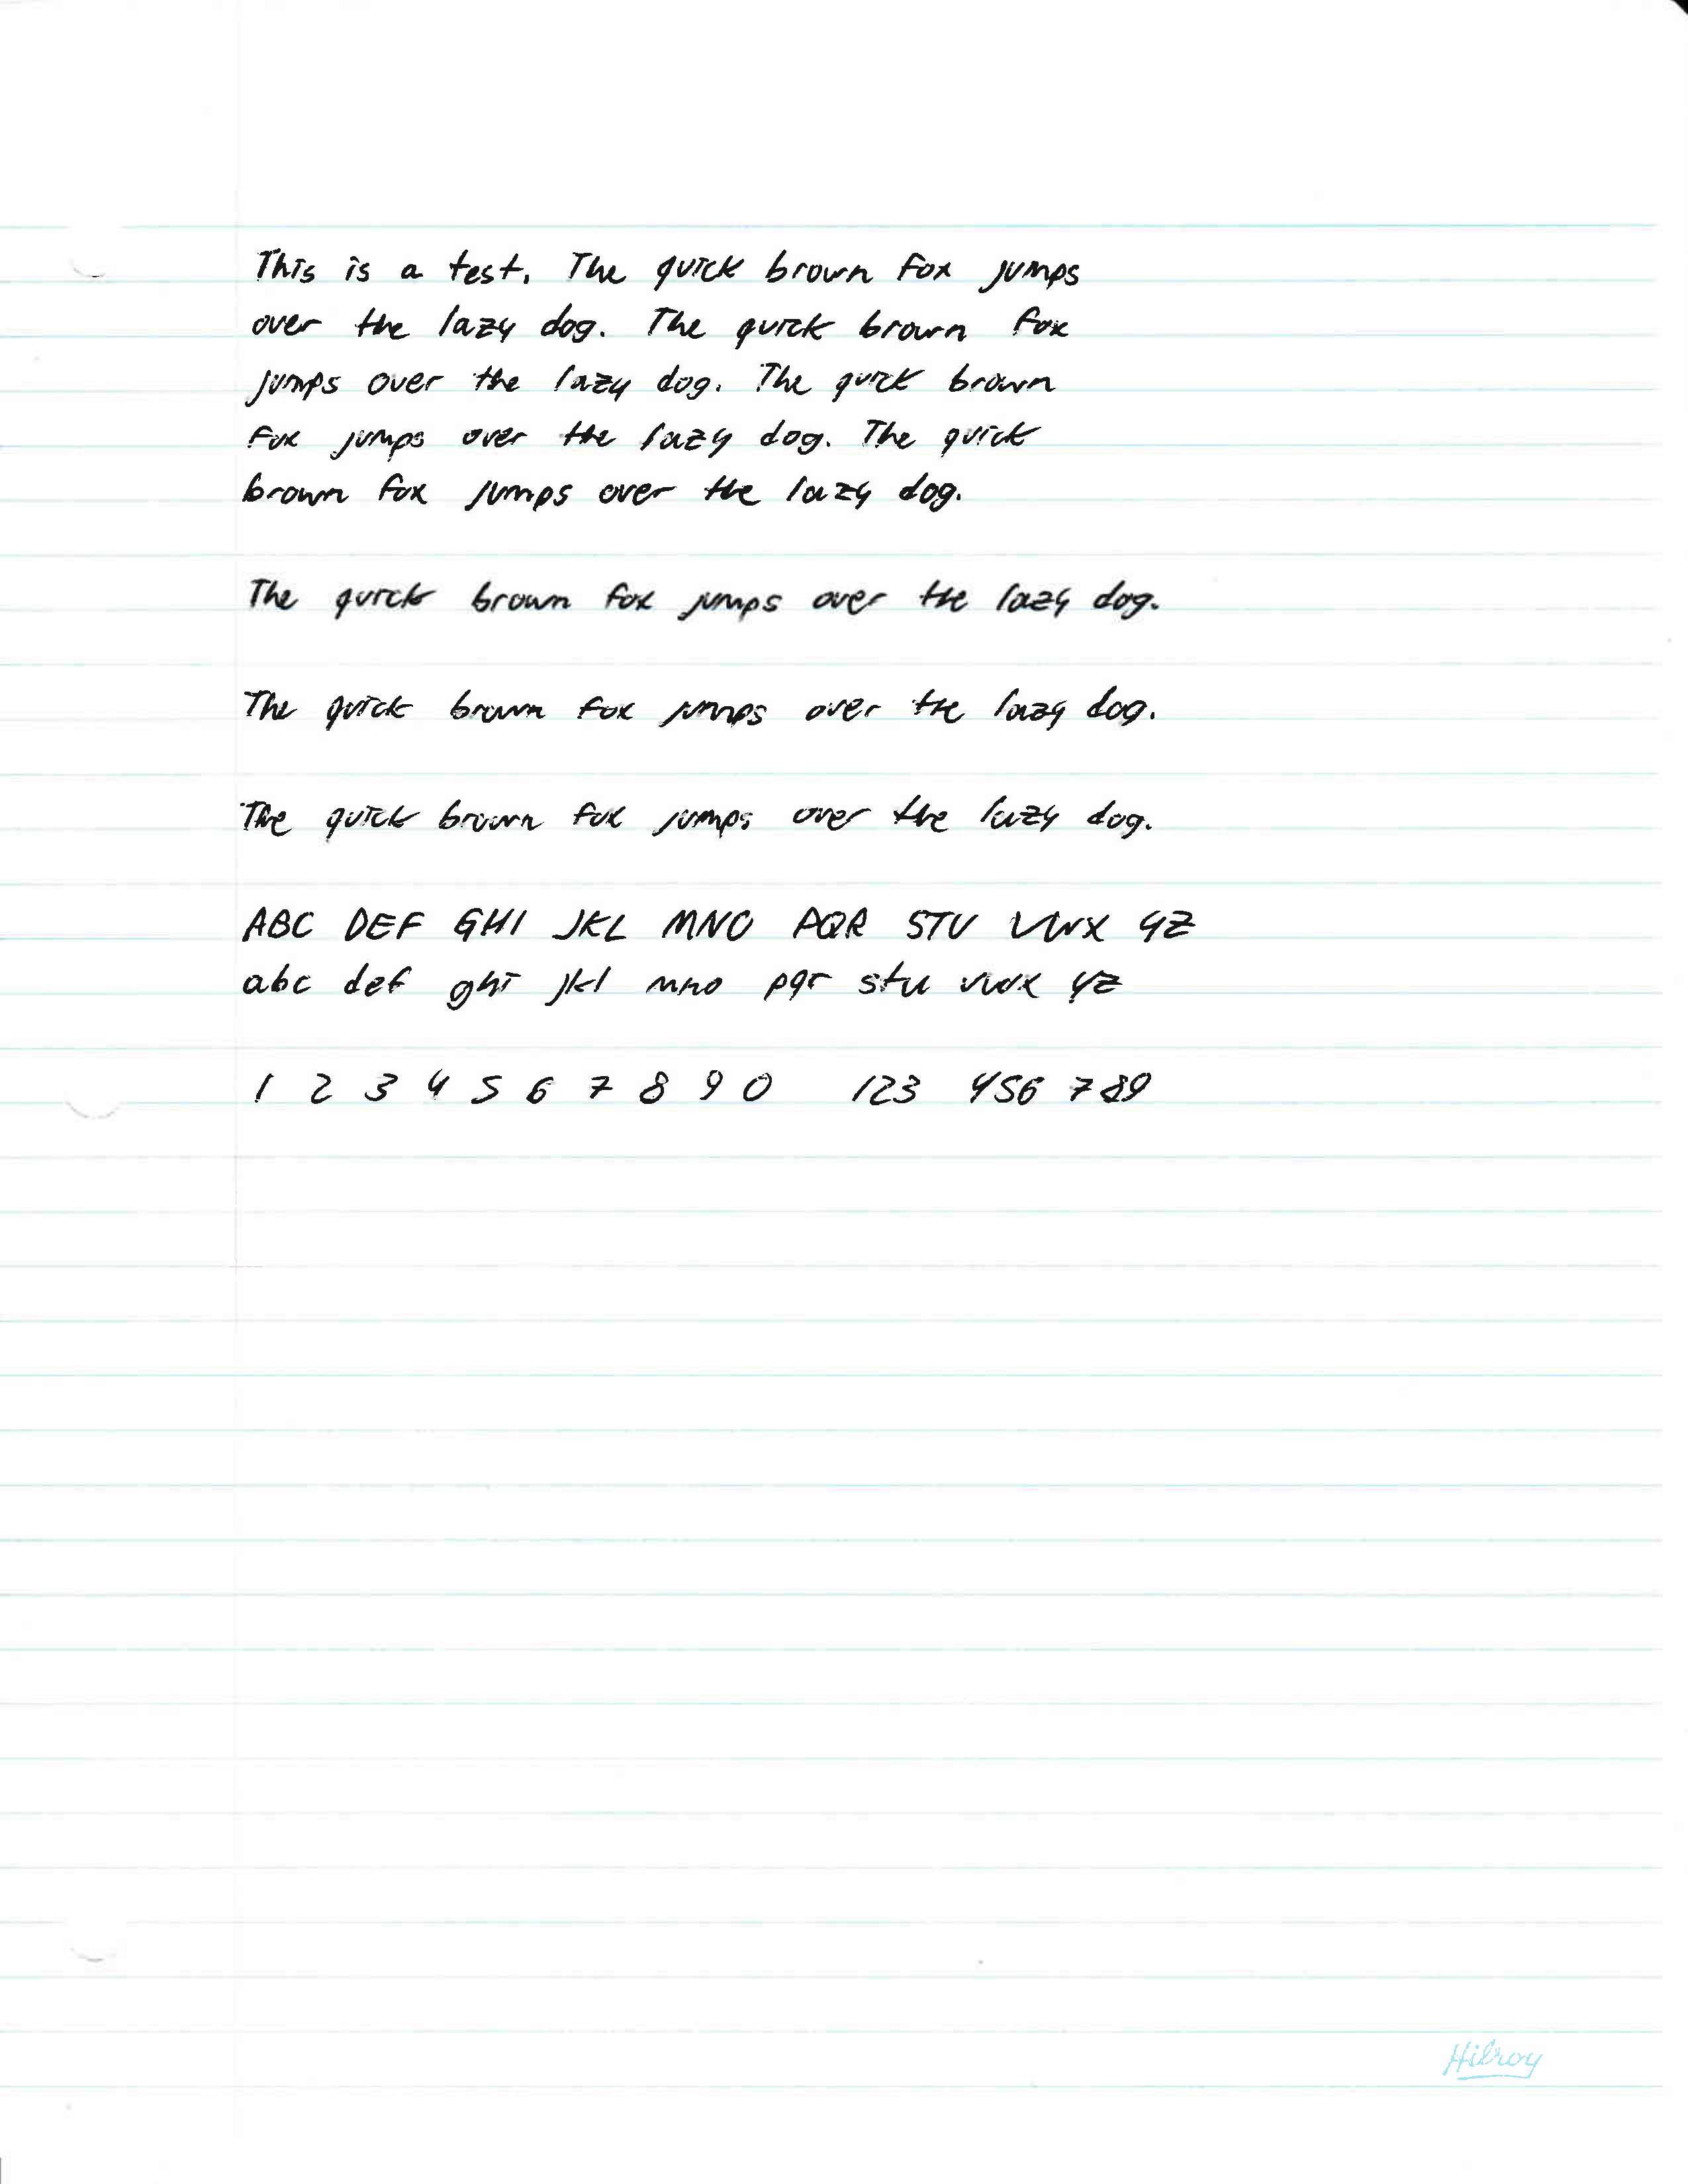 This is a test. The quick brown fox jumps
over the lazy dog. The quick brown fox
jumps over the lazy dog. The quick brown
fox jumps over the lazy dog. The quick
brown fox jumps over the lazy dog.
The quick brown fox jumps over the lazy dog.
The quick brown fox jumps over the lazy dog.
The quick brown fox jumps over the lazy dog.
ABC DEF GHI JKL MNO PQR STU VWX YZ
abc def ghi jkl mno pqr stu vwx yz
1 2 3 4 5 6 7 8 9 0 123 456 789
Hilroy